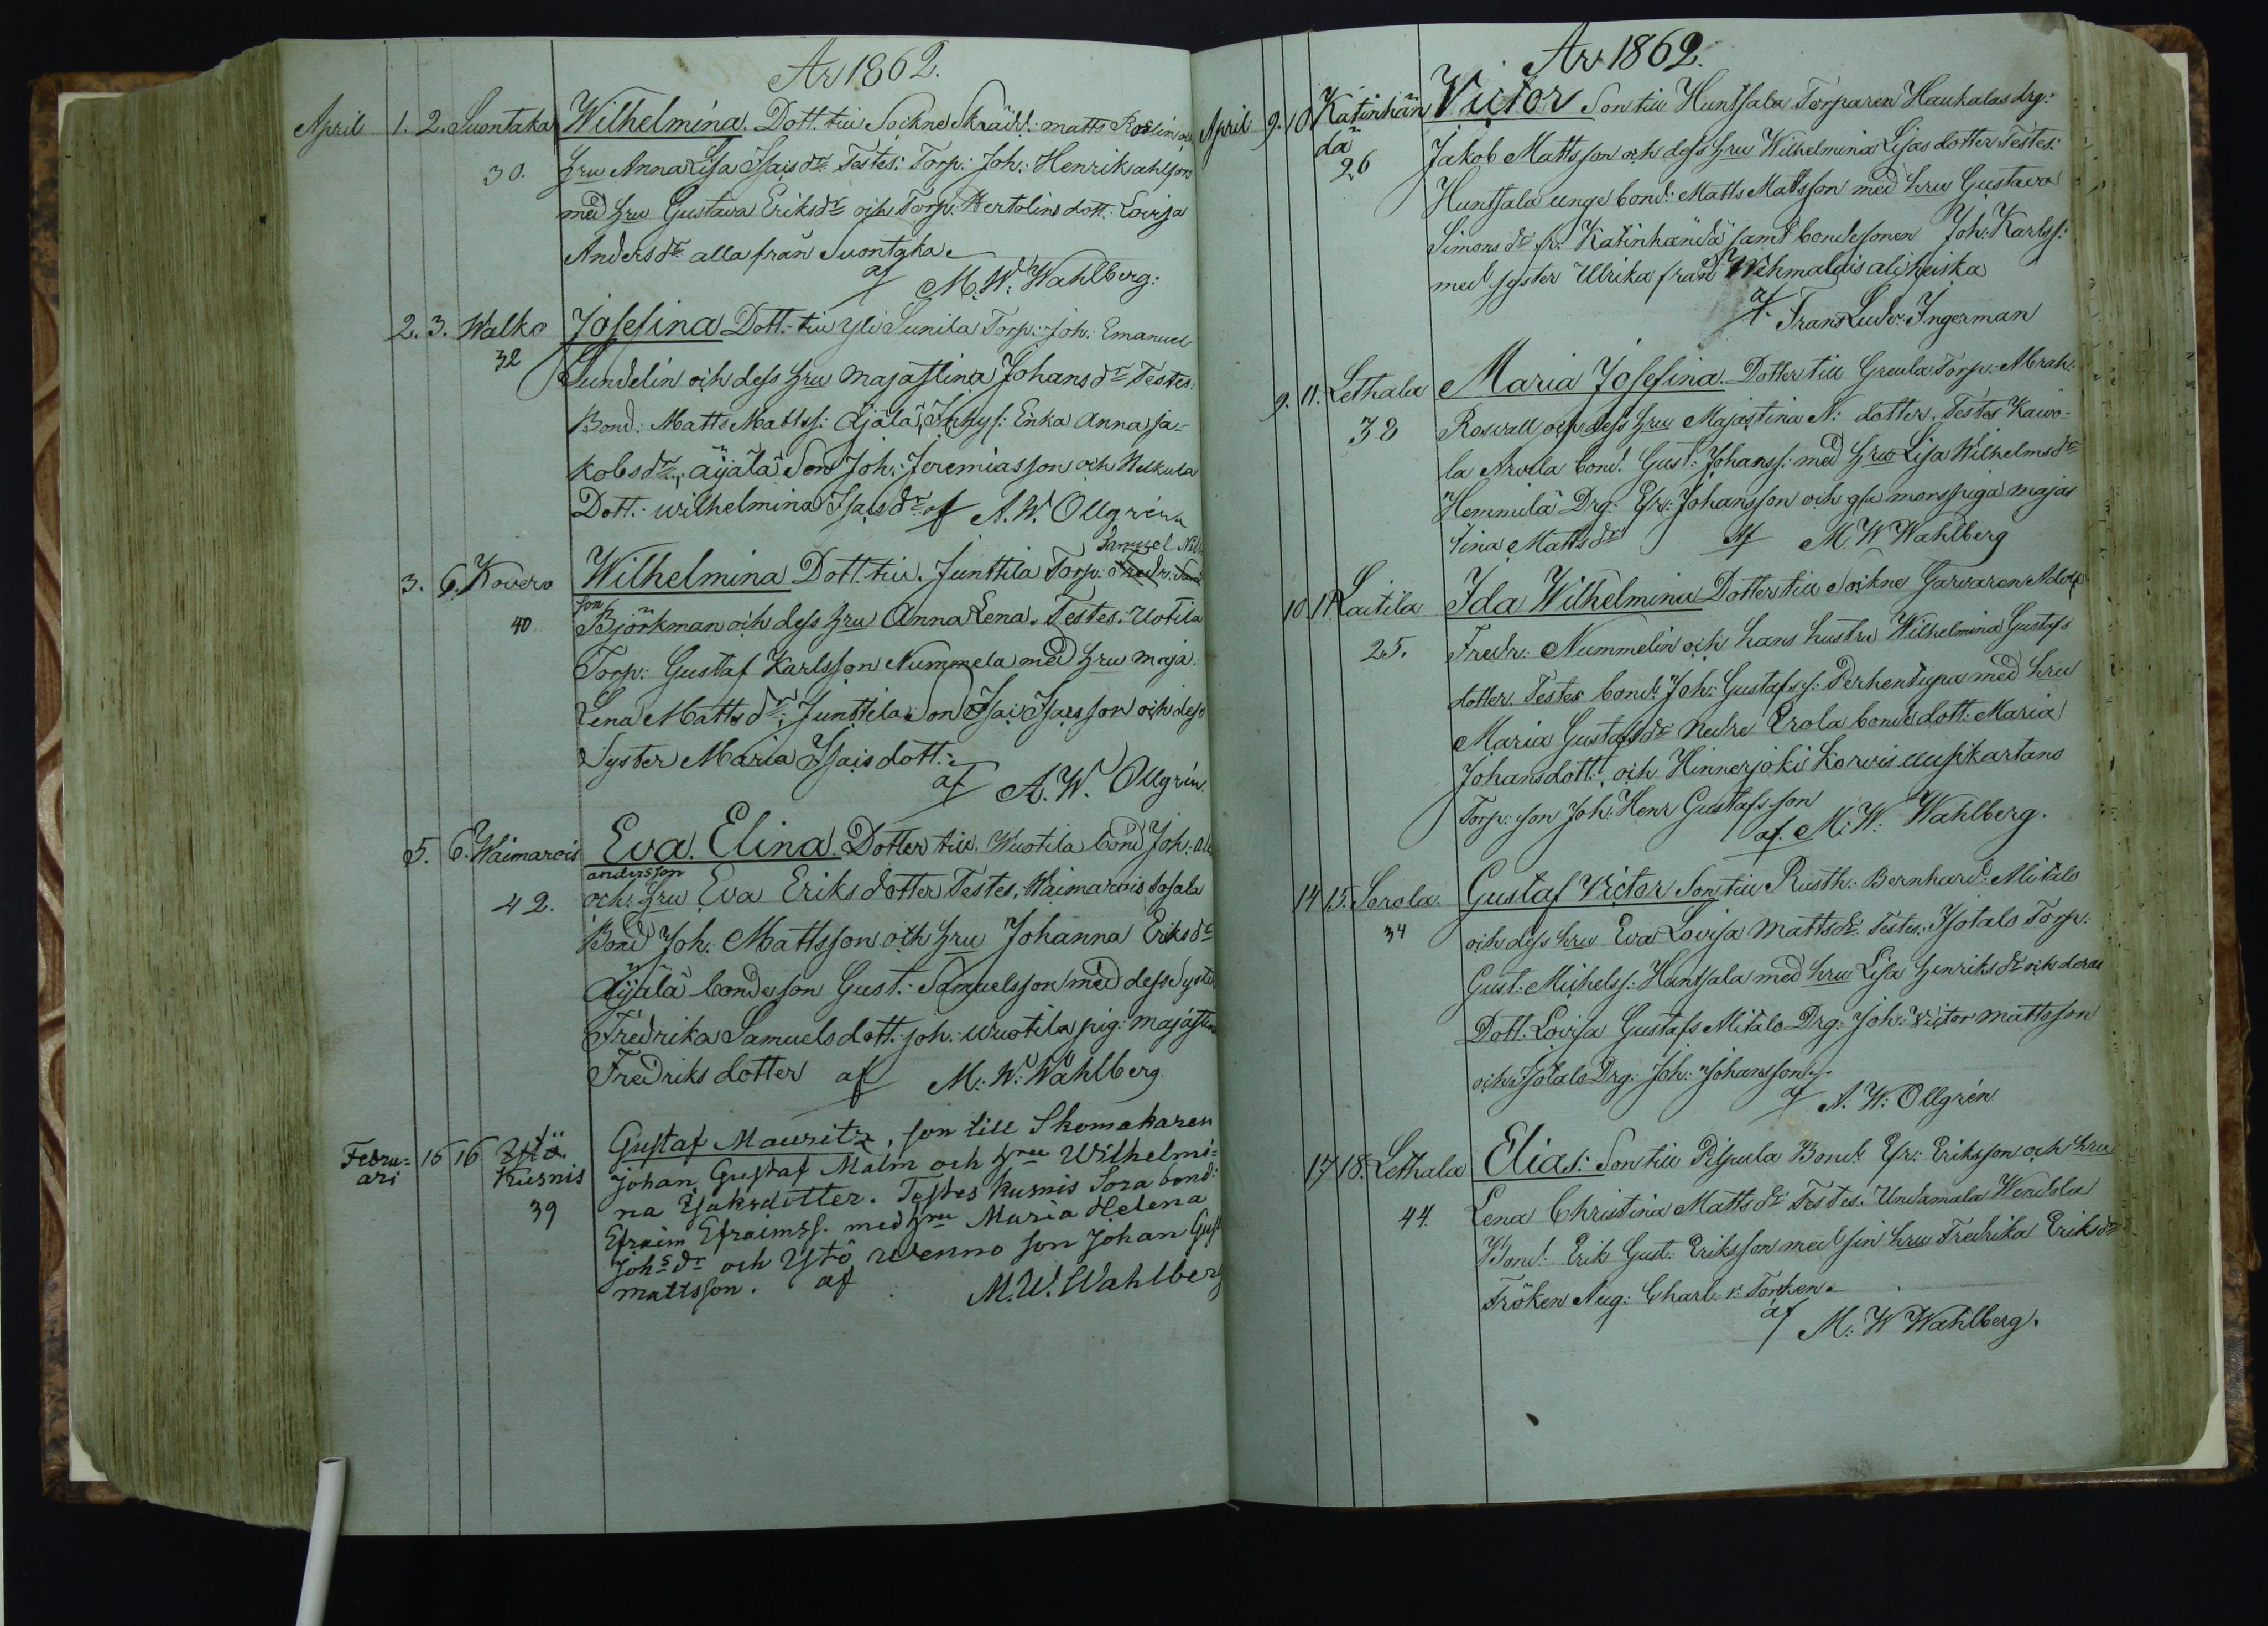 År 1862.
April 1. 2. Suontaka Wilhelmina. Dott. till Sockne Skrädd: Matts Roslin och
30. Hru Anna Lisa Isaisdr. Testes: Torp: Joh: Henrik ahlfors
med Hru Gustava Eriksdr och Torp: Hertolins dott: Lovisa
Andersdr alla från Suontaka
af M. W. Wahlberg:
2. 3. Walko Josefina Dott. till Yli Sunila Torp: Joh: Emanuel
32 Sundelin och dess Hru Majastina Johansdr Testes:
Bond: Matts Mattss: Äjälä, Inhys: Enka Anna Ja-
kobsdr, äijälä Son Joh: Jeremiasson och
Dott. Wilhelmina Isaisdr af A. W. Ollgrén
Samuel Nils
3. 6. Kovero Wilhelmina Dott. till Junttila Torp:
son
40 Björkman och dess Hru Anna Lena. Testes: Uotila
Torp: Gustaf Karlsson Nummela med Hru Maja
Lena Mattsdr, Junttila Son Isai Isaisson och dess
Syster Maria Isaisdott:
af A. W. Ollgrén.
5. 6. Waimarois Eva Elina. Dotter till Wuotila bond Joh:
andersson
42. och Hru Eva Eriksdotter Testes. Waimarois Sosala
Bond Joh: Mattsson och Hru Johanna Eriksdr
Äijälä bondeson Gust: Samuelsson med dess Syster
Fredrika Samuelsdott: joh: Wuotila pig: Majastina
Fredriksdotter af M: W: Wahlberg.
Febru= 16 16 Ystö Gustaf Mauritz, son till Skomakaren
ari Kusnis Johan Gustaf Malm och Hru Wilhelmi=
39 na Isaksdotter. Testes Kusnis Sora bond:
Efraim Efraimss. med Hru Maria Helena
Johsdr och Ystö Wenno son Johan Gust
Mattsson. af M. W. Wahlberg
År 1862.
April 9. 10 Katinhän Victor Son till Huntsala Torparen Haukalas drg:
dä Jakob Mattsson och dess Hru Wilhelmina Lisas dotter Testes:
26 Huntsala unge bond: Matts Mattsson med hru Gustava
Simonsdr fr: Katinhändä samt bondesonen Joh: Karlss:
med syster Ulrika från Wehmalais ali heiska
af Frans Ludv: Ingerman
9. 11. Lethala Maria Josefina. Dotter till Greula Torp: Abrah:
38 Roswall och dess Hru Majastina N: dotter. Testes Kawo=
la Arvela bond. Gust: Johanss: med Hru Lisa Wilhelmsdr
Hemmilä Drg: Efr: Johansson och gla morspiga majas
tina Mattsdr Af M. W Wahlberg
10. 11. Laitila Ida Wilhelmina Dotter till Sockne Garvaren Adolf
25. Fredr: Nummelin och hans hustru Wilhelmina Gustafs
dotter. Testes bond. Joh: Gustafss: Perhentupa med hru
Maria Gustafsdr Nedre Erola bonde dott: Maria
Johansdott: och Hinnerjoki Korvis
Torp: son Joh: Henr Gustafsson
af. M: W: Wahlberg.
14 15. Sorola. Gustaf Victor Son till Rusth: Bernhard: Mitalo
34 och dess hru Eva Lovisa Mattsdr. Testes. Isotalo Torp:
Gust: Michelss: Huntsala med hru Lisa Henriksdr och deras
Dott: Lovisa Gustafs Mitalo Drg: Joh: Victor Mattsson
och Isotalo Drg: Joh: Johansson
af A. W: Ollgrén
17 18. Lethala Elias: Son till Pilpula Bond. Efr: Eriksson och hru
44. Lena Christina Mattsdr Testes. Undamala Wendola
Bond. Erik Gust: Eriksson med sin hru Fredrika Eriksdr
Fröken Aug: Charl: v: Torcken.
af M: W Wahlberg.